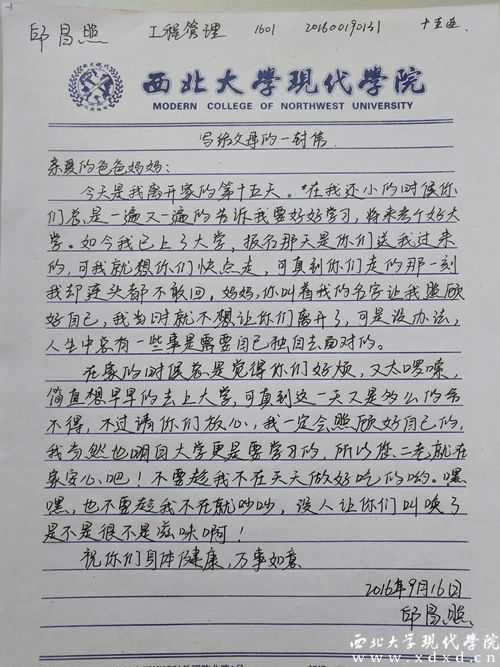 邱昌照 工程管理 1601 201600190131 十五连
西北大學現代學院
MODERN COLLEGE OF NORTHWEST UNIVERSITY
写给父母的一封信
亲爱的爸爸妈妈：
今天是我离开家的第十五天。在我还小的时候你
们总是一遍又一遍的告诉我要好好学习，将来考个好大
学。如今我已上了大学，报名那天是你们送我过来
的，可我就想你们快点走，可直到你们走的那一刻
我却连头都不敢回。妈妈，你叫着我的名字让我照顾
好自己，我当时就不想让你们离开了，可是没办法，
人生中总有一些事是需要自己独自去面对的。
在家的时候总是觉得你们好烦，又太啰嗦，
简直想早早的去上大学，可直到这一天又是多么的舍
不得，不过请你们放心，我一定会照顾好自己的，
我当然也明白大学更是要学习的，所以您二老就在
家安心吧！不要趁我不在天天做好吃的哟。嘿
嘿，也不要趁我不在就吵吵，没人让你们叫唤了
是不是很不是滋味啊！
祝你们身体健康，万事如意
2016年9月16日
邱昌照
西北大学现代学院
www.xdxd.cn